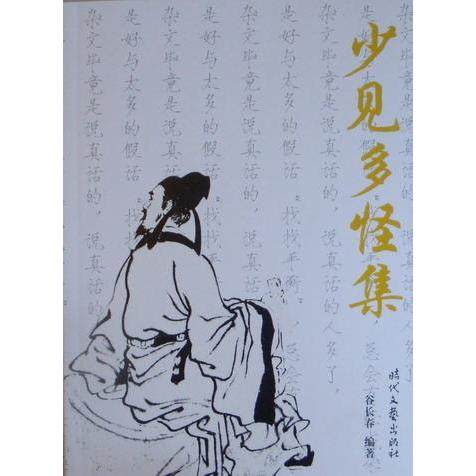 少见多怪集
时代文艺出版社
谷长春 编著
杂文毕竟是说真话的，说真话的人多了，
是好与太多的假话“找找平衡”
杂文毕竟是说真话的，说真话
是好与太多的假话“找找平
杂文毕竟是说真话的，说真话
是好与太多的假话
杂文毕竟是说真话的，说真话的